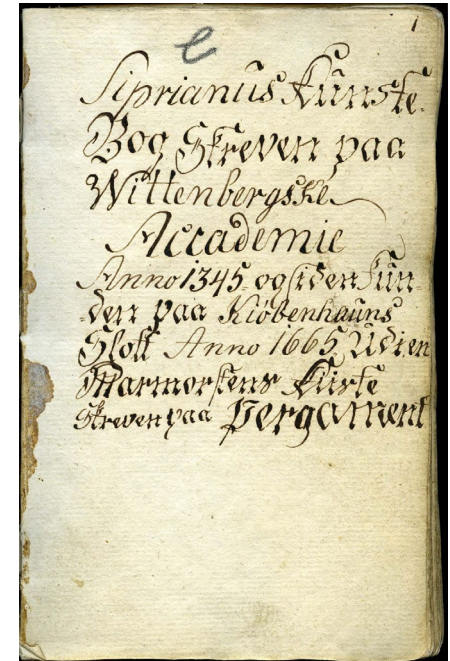 1
e
Siprianus Kunste.
Bog Skreven paa
Wittenbergske
Accademie
Anno 1345 og siden fun-
den paa Kiøbenhauns
Slott Anno 1665 Udi en
Marmorstens Kiiste
Skreven paa Pergament